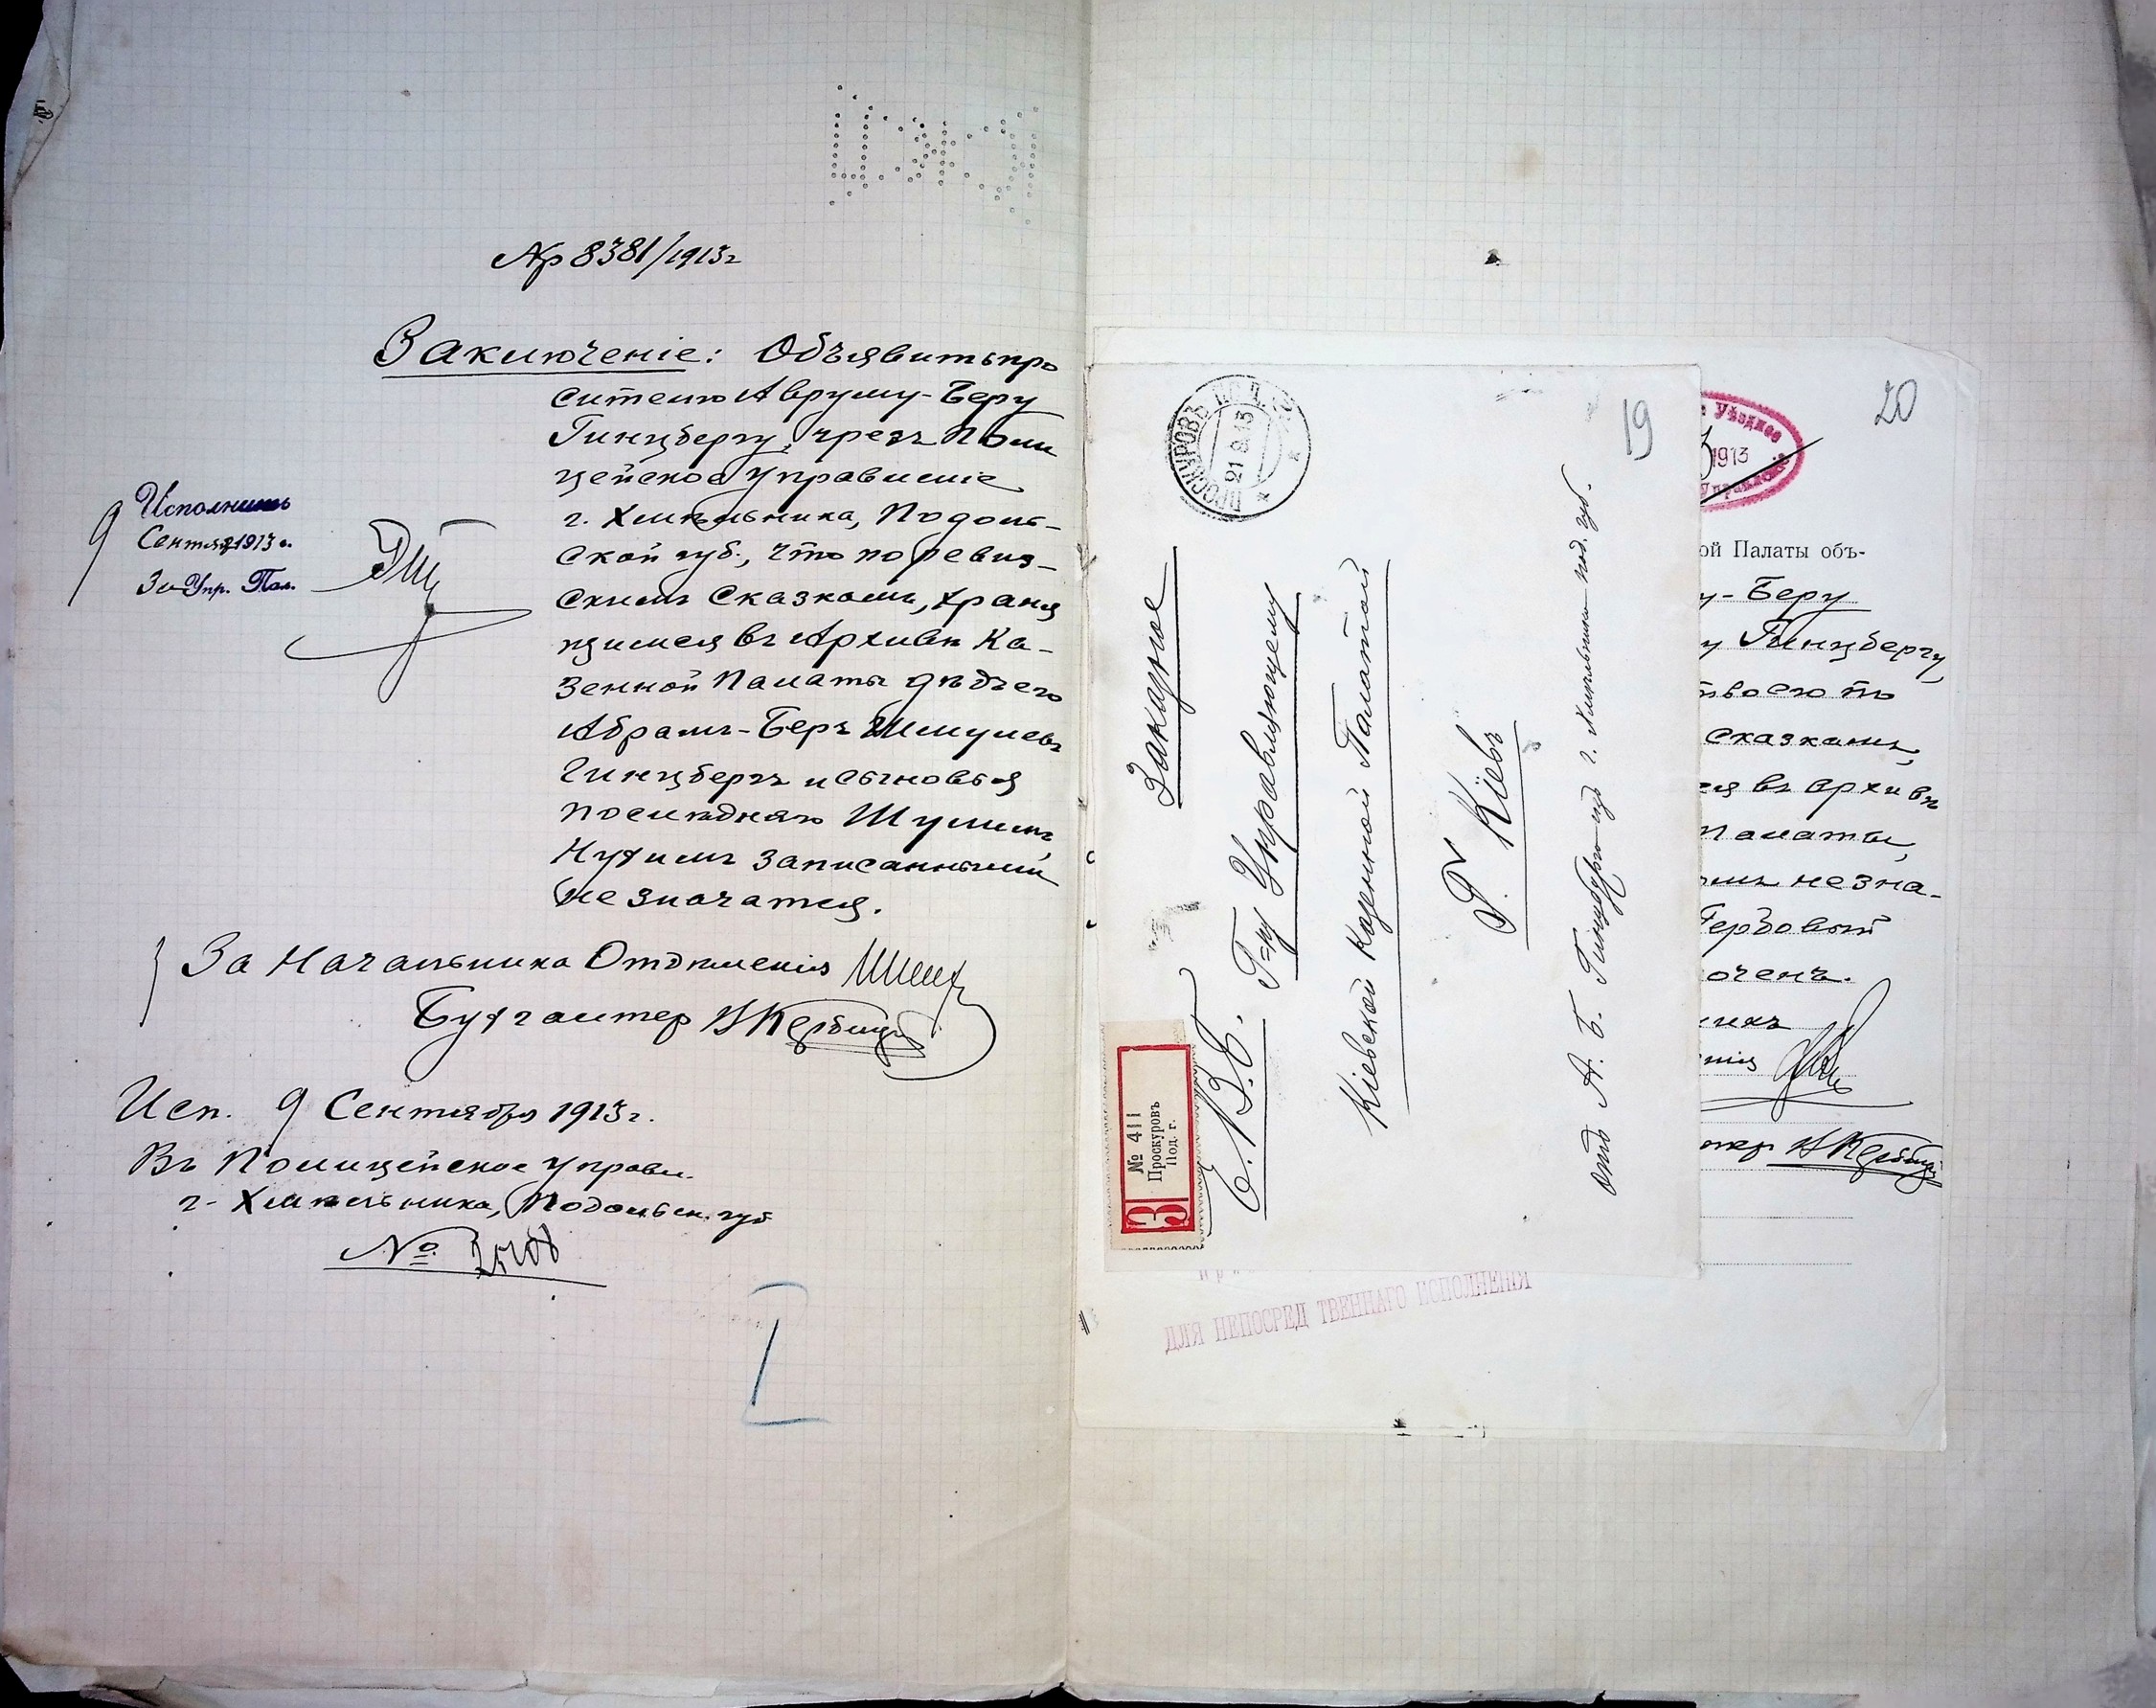 № 8381/1913г
Заключеніе: Объявить про
сителю Авруму-Беру
Гинцбергу, чрезъ Поли
цейское Управленіе
г. Хмѣльника, Подоль-
ской губ., что по ревиз-
скимъ сказкамъ, храня
щимся въ Архивѣ Ка-
зенной Палаты дѣдъ его
Абрамъ-Беръ Шмулевъ
Гинцбергъ и сыновья
послѣдняго Шулимъ
Нухимъ записанными
не значатся.
9 Исполнить
Сентяб 1913 г.
За Упр. Пал.
За Начальника Отдѣленія
Бухгалтер
Исп. 9 Сентября 1913 г.
Въ Полицейское Управл.
г. Хмѣльника, Подольск. губ
№
19
ПРОСКУРОВЪ ПОД.
21 9 13
Заказное
Е. В. Б. Г=ну Управляющему
Кіевской Казенной Палатой
Г. Кіевъ
отъ А. Б. Гинцберга изъ г. Хмѣльника под. губ.
З № 411
Проскуровъ
Под. г.
20
Уѣздное
1913
Управл
ой Палаты объ-
у-Беру
у Гинцбергу,
сказкамъ,
ся въ архивѣ
Палаты,
не зна-
Гербовый
оченъ.
никъ
нія
тер
ДЛЯ НЕПОСРЕД ТВЕННАГО ИСПОЛНЕНІЯ